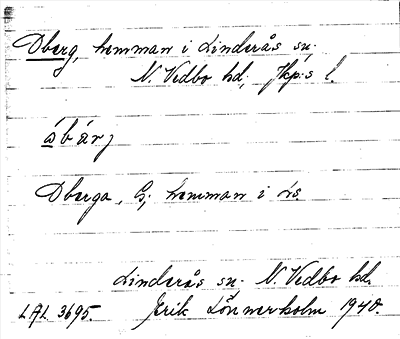 Oberg, hemman i Linderås sn.
N. Vedbo hd, Jkp:s l.
åbärj
Oberga, G; hemman i Ls.
Linderås sn. N. Vedbo hd.
LAL 3695. Jerik Lönnerholm 1940.